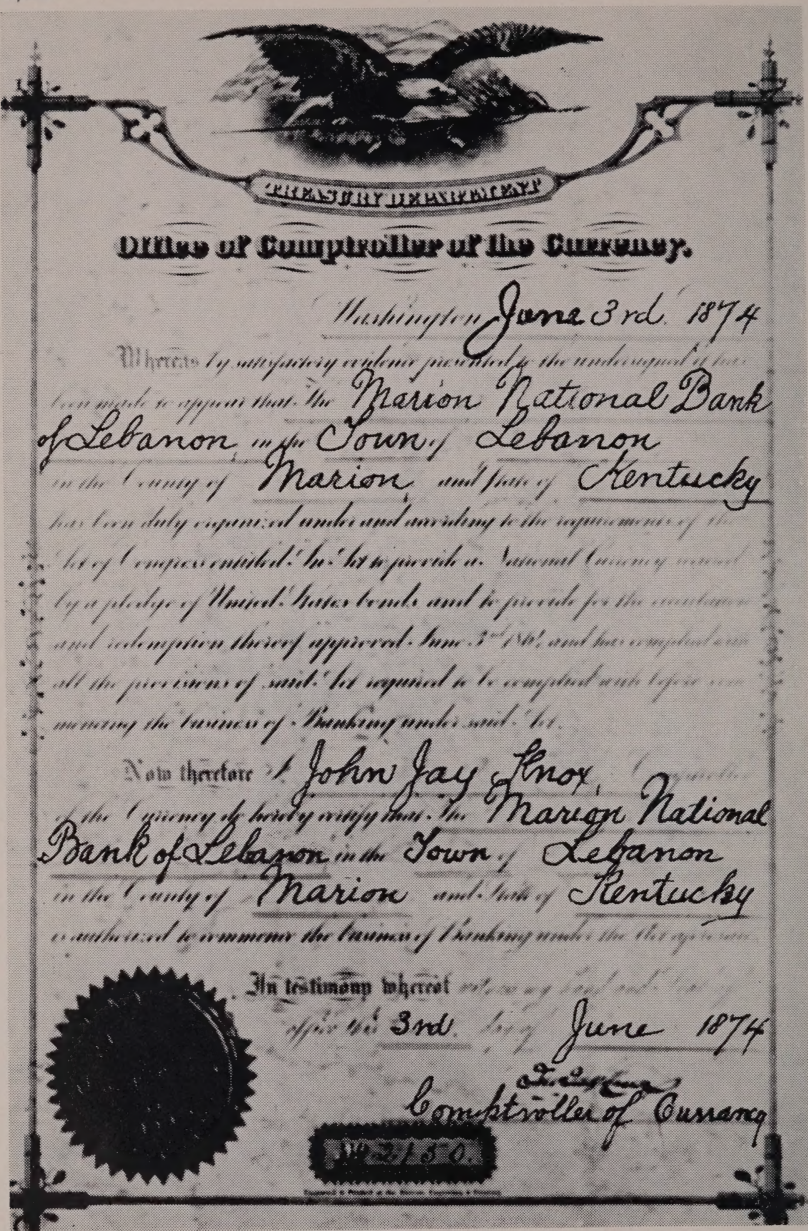 TREASURY DEPARTMENT
Office of Comptroller of the Currency.
Washington June 3rd. 1874
Whereas by satisfactory evidence presented to the undersigned it has
been made to appear that The Marion National Bank
of Lebanon, in the Town of Lebanon
in the County of Marion, and State of Kentucky
has been duly organized under and according to the requirements of the
Act of Congress entitled An Act to provide a National Currency secured
by a pledge of United States bonds and to provide for the circulation
and redemption thereof approved June 3rd 1864 and has complied with
all the provisions of said Act required to be complied with before com
mencing the business of Banking under said Act.
Now therefore I John Jay Knox, Comptroller
of the Currency do hereby certify that The Marion National
Bank of Lebanon in the Town of Lebanon
in the County of Marion and State of Kentucky
is authorized to commence the business of Banking under the Act aforesaid
In testimony whereof witness my hand and seal of
office this 3rd. day of June 1874
Comptroller of Currancy
No 2150.